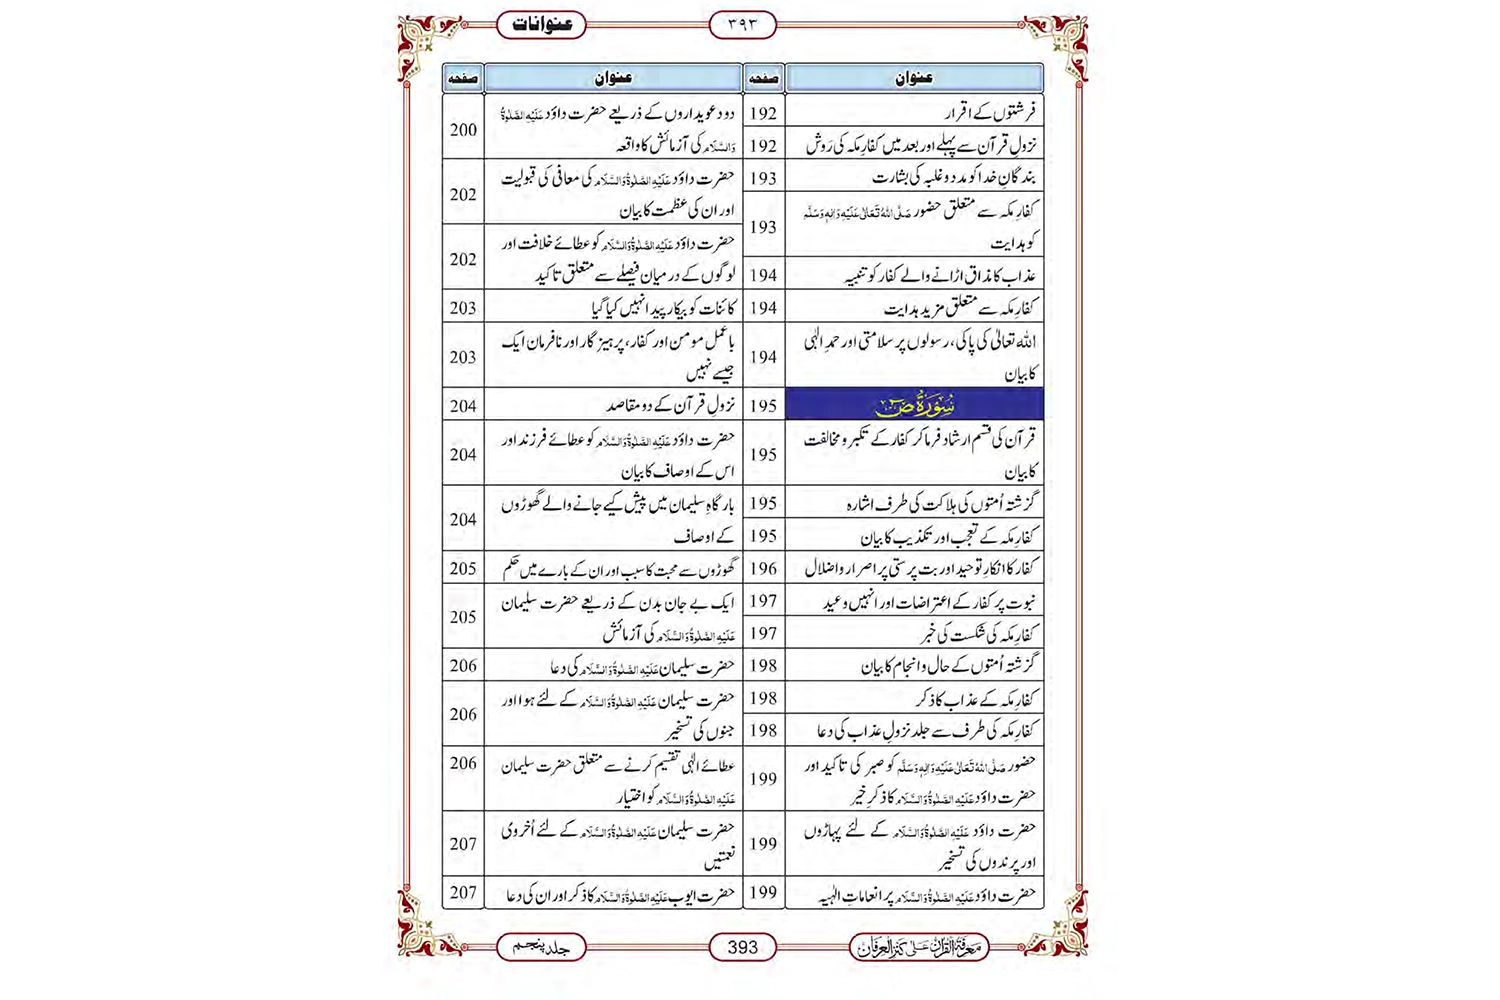 عنوانات
۳۹۳
عنوان صفحہ
فرشتوں کے اقرار 192
نزولِ قرآن سے پہلے اور بعد میں کفارِ مکہ کی رَوِش 192
بندگانِ خدا کو مدد و غلبہ کی بشارت 193
کفارِ مکہ سے متعلق حضور صَلَّی اللہُ تَعَالٰی عَلَیْہِ وَاٰلِہٖ وَسَلَّم
کو ہدایت 193
عذاب کا مذاق اڑانے والے کفار کو تنبیہ 194
کفارِ مکہ سے متعلق مزید ہدایت 194
اللہ تعالیٰ کی پاکی، رسولوں پر سلامتی اور حمدِ الٰہی
کا بیان 194
سُوْرَۃُ صٓ 195
قرآن کی قسم ارشاد فرما کر کفار کے تکبر و مخالفت
کا بیان 195
گزشتہ اُمتوں کی ہلاکت کی طرف اشارہ 195
کفارِ مکہ کے تعجب اور تکذیب کا بیان 195
کفار کا انکارِ توحید اور بت پرستی پر اصرار و اضلال 196
نبوت پر کفار کے اعتراضات اور انہیں وعید 197
کفارِ مکہ کی شکست کی خبر 197
گزشتہ اُمتوں کے حال و انجام کا بیان 198
کفارِ مکہ کے عذاب کا ذکر 198
کفارِ مکہ کی طرف سے جلد نزولِ عذاب کی دعا 198
حضور صَلَّی اللہُ تَعَالٰی عَلَیْہِ وَاٰلِہٖ وَسَلَّم کو صبر کی تاکید اور
حضرت داؤد عَلَیْہِ الصَّلٰوۃُ وَالسَّلَام کا ذکرِ خیر 199
حضرت داؤد عَلَیْہِ الصَّلٰوۃُ وَالسَّلَام کے لئے پہاڑوں
اور پرندوں کی تسخیر 199
حضرت داؤد عَلَیْہِ الصَّلٰوۃُ وَالسَّلَام پر انعاماتِ الٰہیہ 199
عنوان صفحہ
دو دعویداروں کے ذریعے حضرت داؤد عَلَیْہِ الصَّلٰوۃُ
وَالسَّلَام کی آزمائش کا واقعہ 200
حضرت داؤد عَلَیْہِ الصَّلٰوۃُ وَالسَّلَام کی معافی کی قبولیت
اور ان کی عظمت کا بیان 202
حضرت داؤد عَلَیْہِ الصَّلٰوۃُ وَالسَّلَام کو عطائے خلافت اور
لوگوں کے درمیان فیصلے سے متعلق تاکید 202
کائنات کو بیکار پیدا نہیں کیا گیا 203
باعمل مومن اور کفار، پرہیزگار اور نافرمان ایک
جیسے نہیں 203
نزولِ قرآن کے دو مقاصد 204
حضرت داؤد عَلَیْہِ الصَّلٰوۃُ وَالسَّلَام کو عطائے فرزند اور
اس کے اوصاف کا بیان 204
بارگاہِ سلیمان میں پیش کیے جانے والے گھوڑوں
کے اوصاف 204
گھوڑوں سے محبت کا سبب اور ان کے بارے میں حکم 205
ایک بے جان بدن کے ذریعے حضرت سلیمان
عَلَیْہِ الصَّلٰوۃُ وَالسَّلَام کی آزمائش 205
حضرت سلیمان عَلَیْہِ الصَّلٰوۃُ وَالسَّلَام کی دعا 206
حضرت سلیمان عَلَیْہِ الصَّلٰوۃُ وَالسَّلَام کے لئے ہوا اور
جنوں کی تسخیر 206
عطائے الٰہی تقسیم کرنے سے متعلق حضرت سلیمان
عَلَیْہِ الصَّلٰوۃُ وَالسَّلَام کو اختیار 206
حضرت سلیمان عَلَیْہِ الصَّلٰوۃُ وَالسَّلَام کے لئے اُخروی
نعمتیں 207
حضرت ایوب عَلَیْہِ الصَّلٰوۃُ وَالسَّلَام کا ذکر اور ان کی دعا 207
معرفۃ القرآن علیٰ کنز العرفان
393
جلد پنجم